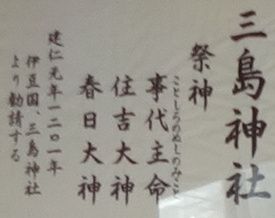 三島神社
祭神
ことしろのぬしのみこと
事代主命
住吉大神
春日大神
建仁元年一二〇一年
伊豆国、三島神社
より勧請する